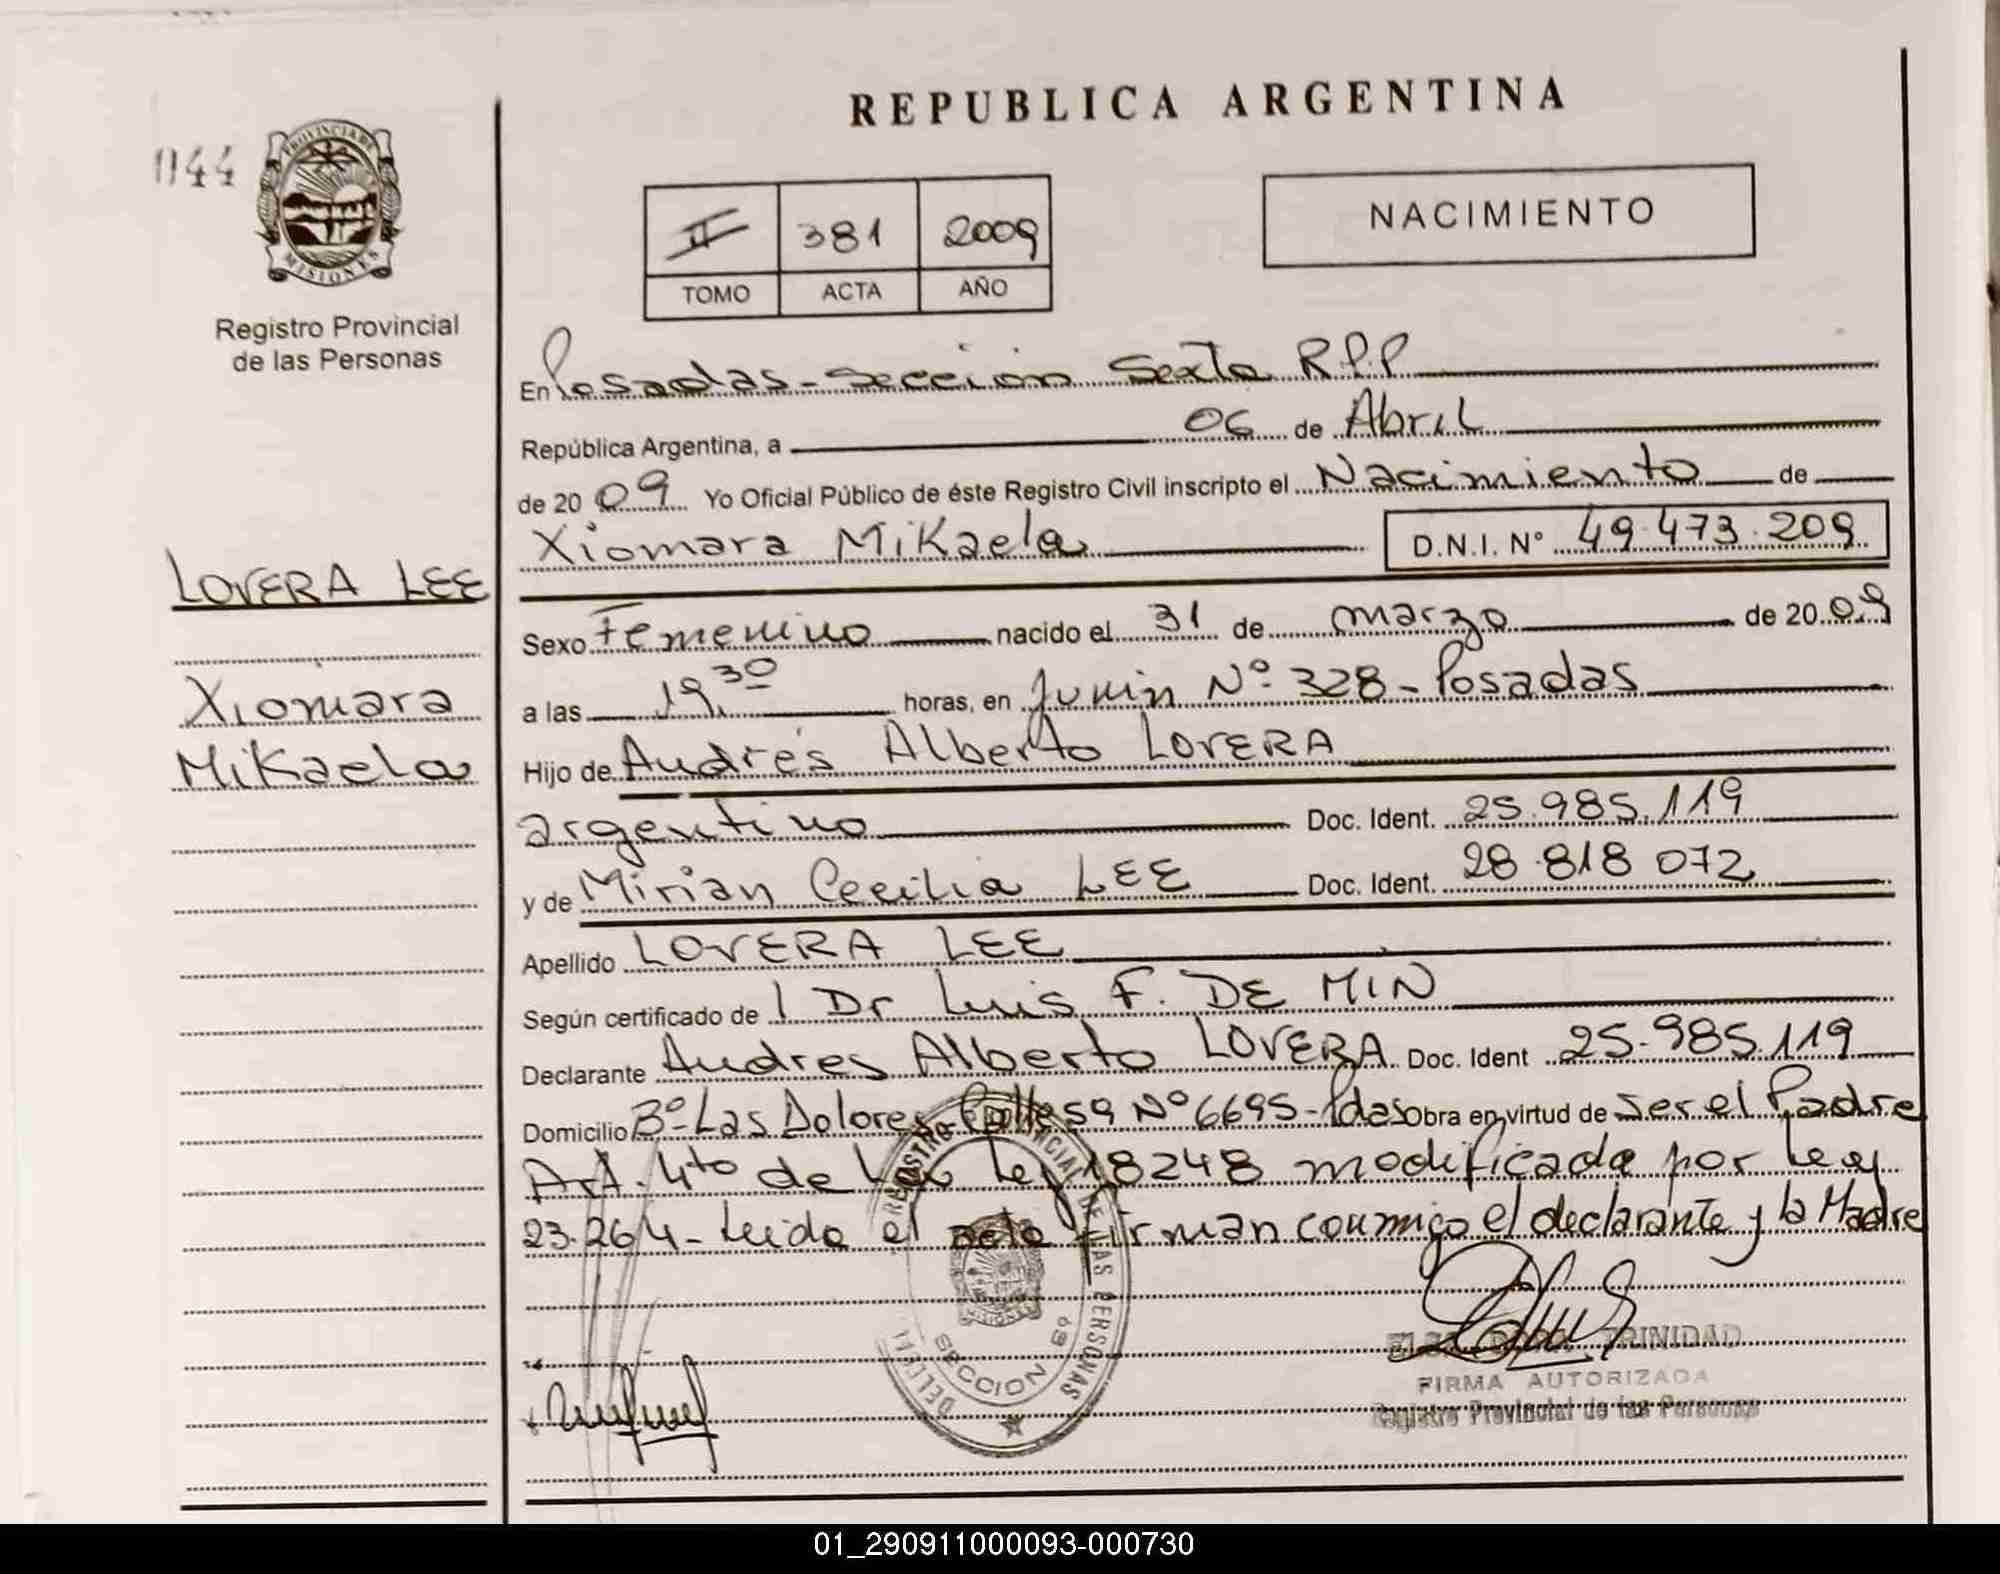 REPUBLICA ARGENTINA
1144
PROVINCIA DE
MISIONES
Registro Provincial
de las Personas
II 381 2009
TOMO ACTA AÑO
NACIMIENTO
En Posadas - Sección Sexta R.P.P
República Argentina, a 06 de Abril
de 2009 Yo Oficial Público de éste Registro Civil inscripto el Nacimiento de
Xiomara Mikaela D.N.I. N° 49.473.209
LOVERA LEE
Xiomara
Mikaela
Sexo Femenino nacido el 31 de marzo de 2009
a las 19,30 horas, en Junin Nº 328 - Posadas
Hijo de Andrés Alberto LOVERA
argentino Doc. Ident. 25.985.119
y de Mirian Cecilia LEE Doc. Ident. 28.818.072
Apellido LOVERA LEE
Según certificado de l Dr Luis F. DE MIN
Declarante Andres Alberto LOVERA Doc. Ident 25.985.119
Domicilio Bº Las Dolores Calle 59 Nº 6695 - Pdas Obra en virtud de ser el Padre
Art. 4to de la Ley 18248 modificada por Ley
23.264 - Leida el acta firman conmigo el declarante y la Madre
REGISTRO PROVINCIAL DE LAS PERSONAS
SECCION 6º
TRINIDAD
FIRMA AUTORIZADA
Registro Provincial de las Personas
01_290911000093-000730